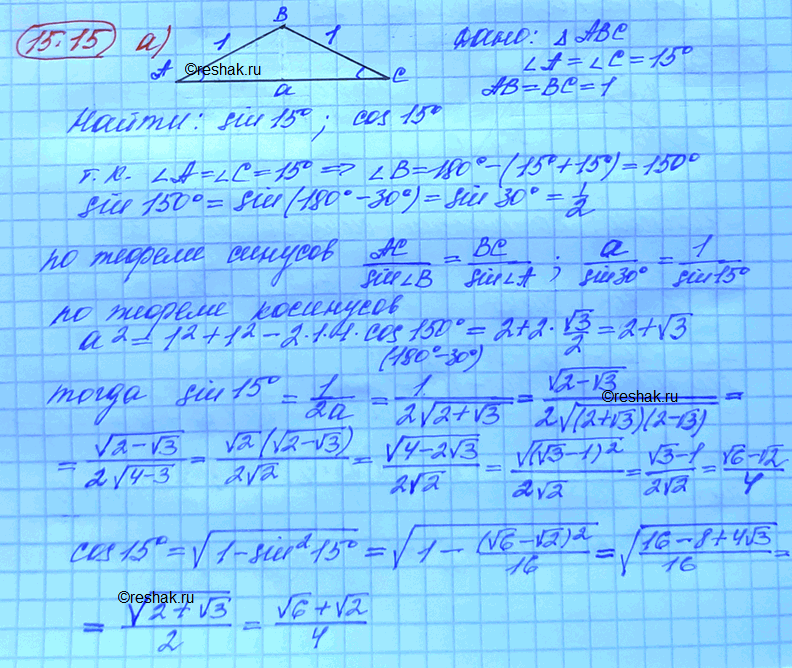 15.15 а) B
1 1
A C
©reshak.ru
a
Дано: Δ ABC
∠A=∠C=15°
AB=BC=1
Найти: sin 15°; cos 15°
т.к. ∠A=∠C=15° => ∠B=180°-(15°+15°)=150°
sin 150° = sin(180°-30°) = sin 30° = 1/2
по теореме синусов AC/sin∠B = BC/sin∠A ; a/sin30° = 1/sin15°
по теореме косинусов
a² = 1²+1²-2·1·1·cos 150° = 2+2·√3/2 = 2+√3
(180°-30°)
тогда sin 15° = 1/2a = 1/2√(2+√3) = √(2-√3)/2√((2+√3)(2-√3)) =
= √(2-√3)/2√(4-3) = √2(√(2-√3))/2√2 = √(4-2√3)/2√2 = √((√3-1)²)/2√2 = √3-1/2√2 = √6-√2/4
cos 15° = √(1-sin²15°) = √(1-(√6-√2)²/16) = √(16-8+4√3/16) =
©reshak.ru
= √(2+√3)/2 = √6+√2/4